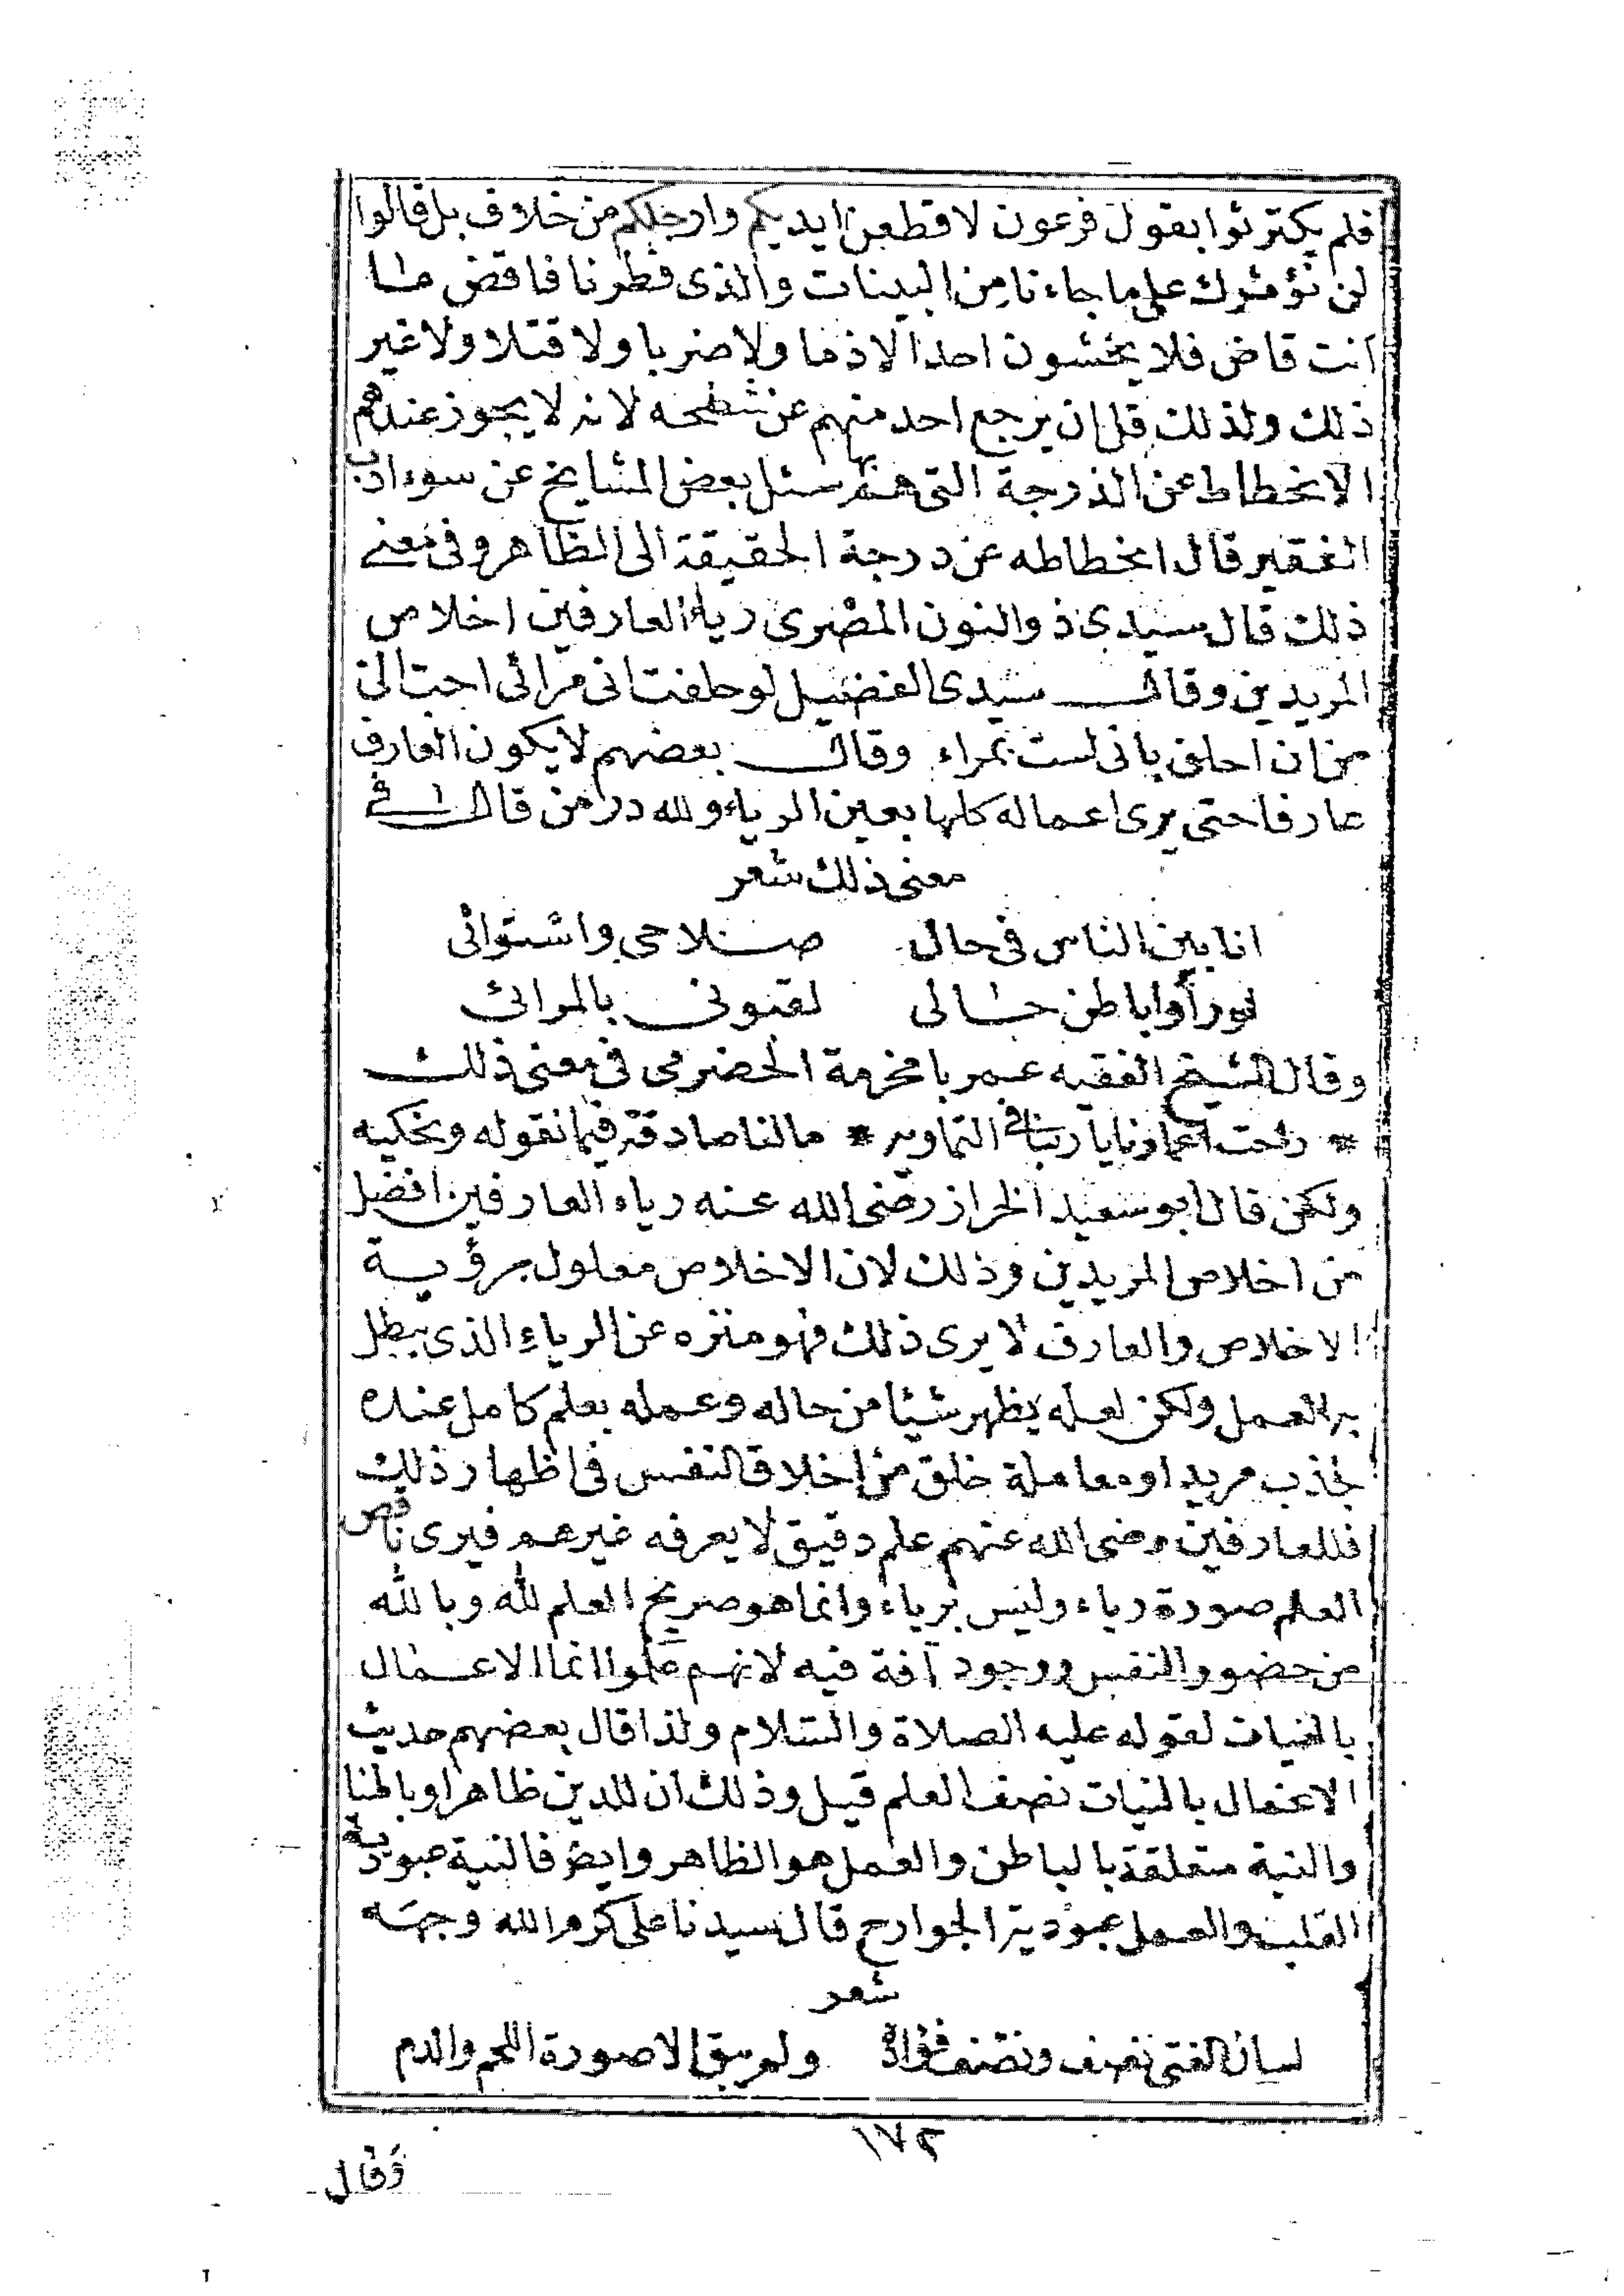 فلم يكترثوا بقول فرعون لاقطعن ايديكم وارجلكم من خلاف بل قالوا
لن نؤثرك على ما جاءنا من البينات والذى فطرنا فاقض ما
انت قاض فلا يخشون احدا لاذما ولا ضربا ولا قتلا ولا غير
ذلك ولذلك قل ان يرجع احد منهم عن شطحه لانه لا يجوز عندهم
الانحطاط عن الدرجة التى هم بها سئل بعض المشايخ عن سوء ادب
الفقير قال انحطاطه عن درجة الحقيقة الى الظاهر وفى معنى
ذلك قال سيدى ذوالنون المصرى رياء العارفين اخلاص
المريدين وقال سيدى الفضيل لو حلفت انى مرائى احب الى
من ان احلف بانى لست بمراء وقال بعضهم لا يكون العارف
عارفا حتى يرى اعماله كلها بعين الرياء ولله در من قال فى
معنى ذلك شعر
انا بين الناس فى حال صلاحى واستوائى
لو رأوا باطن حالى لقبونى بالمرائى
وقال الشيخ الفقيه عمر بامخرمة الحضرمى فى معنى ذلك
* راحت اعمارنا يا ربنا فى التماويه * مالنا صادقه فيما نقوله ونحكيه
ولكن قال ابو سعيد الخراز رضى الله عنه رياء العارفين افضل
من اخلاص المريدين وذلك لان الاخلاص معلول برؤية
الاخلاص والعارف لا يرى ذلك فهو منزه عن الرياء الذى يبطل
به العمل ولكن لعله يظهر شيئا من حاله وعمله بعلم كامل عنده
لجذب مريد او معاملة خلق من اخلاق النفس فى اظهار ذلك
فللعارفين رضى الله عنهم علم دقيق لا يعرفه غيرهم فيرى ناقص
العلم صورة رياء وليس برياء وانما هو صريح العلم لله وبالله
من حضور النفس ووجود آفة فيه لانهم علموا انما الاعمال
بالنيات لقوله عليه الصلاة والسلام ولذا قال بعضهم حديث
الاعمال بالنيات نصف العلم قيل وذلك ان للدين ظاهرا وباطنا
والنية متعلقة بالباطن والعمل هو الظاهر وايض فالنية عبودية
القلب والعمل عبودية الجوارح قال سيدنا على كرم الله وجهه
شعر
لسان الفتى نصف ونصف فؤاده ولم يبق الا صورة اللحم والدم
١٧٢
وقال